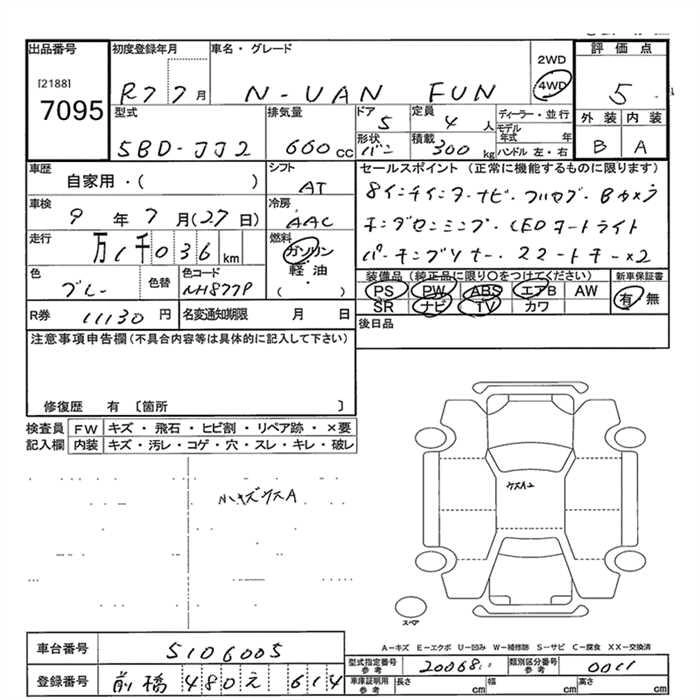 出品番号 初度登録年月 車名・グレード 評価点
[2188] 2WD
7095 R7 7月 N-VAN FUN 4WD 5
型式 排気量 ドア 定員 ディーラー・並行 外装 内装
5BD-JJ2 660cc 5 4人 モデル年式 年 B A
形状 バン 積載 300kg ハンドル 左・右
車歴 シフト セールスポイント(正常に機能するものに限ります)
自家用・( ) AT 8インチインターナビ・フルセグ・Bカメラ
車検 冷房
9年7月(27日) AAC ホンダセンシング・LEDオートライト
走行 燃料
万1千036km ガソリン パーキングソナー・スマートキー×2
軽油
( )
色 色替 色コード 装備品(純正品に限り○をつけてください) 新車保証書
グレー NH877P PS PW ABS エアB AW 有・無
SR ナビ TV カワ
R券 11130円 名変通知期限 月 日 後日品
注意事項申告欄(不具合内容等は具体的に記入して下さい)
修復歴 有 〔箇所 〕
検査員 FW キズ・飛石・ヒビ割・リペア跡・×要
記入欄 内装 キズ・汚レ・コゲ・穴・スレ・キレ・破レ
小キズウスA
ウスA2
スペア
A-キズ E-エクボ U-凹み W-補修跡 S-サビ C-腐食 XX-交換済
車台番号 5106005 型式指定番号 参考 20068 類別区分番号 参考 0011
登録番号 前橋 480 え 614 車庫証明用 参考 長さ cm 幅 cm 高さ cm